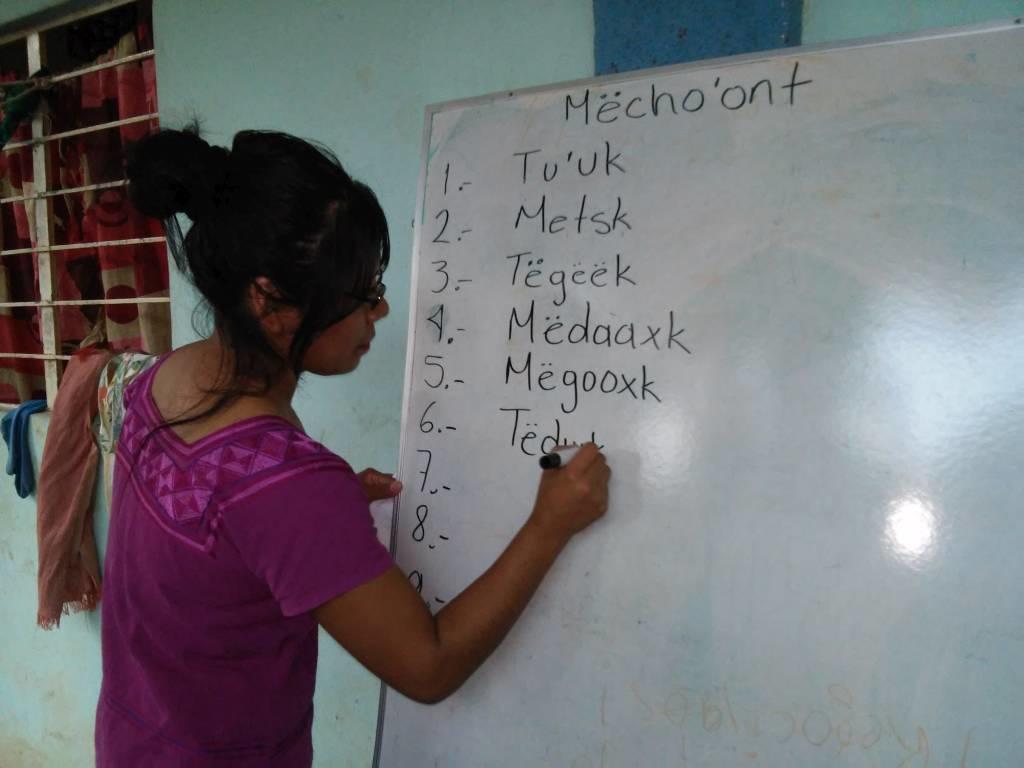 Mëcho'ont
1.- Tu'uk
2.- Metsk
3.- Tëgëëk
4.- Mëdaaxk
5.- Mëgooxk
6.- Tëdu
7.-
8.-
9.-